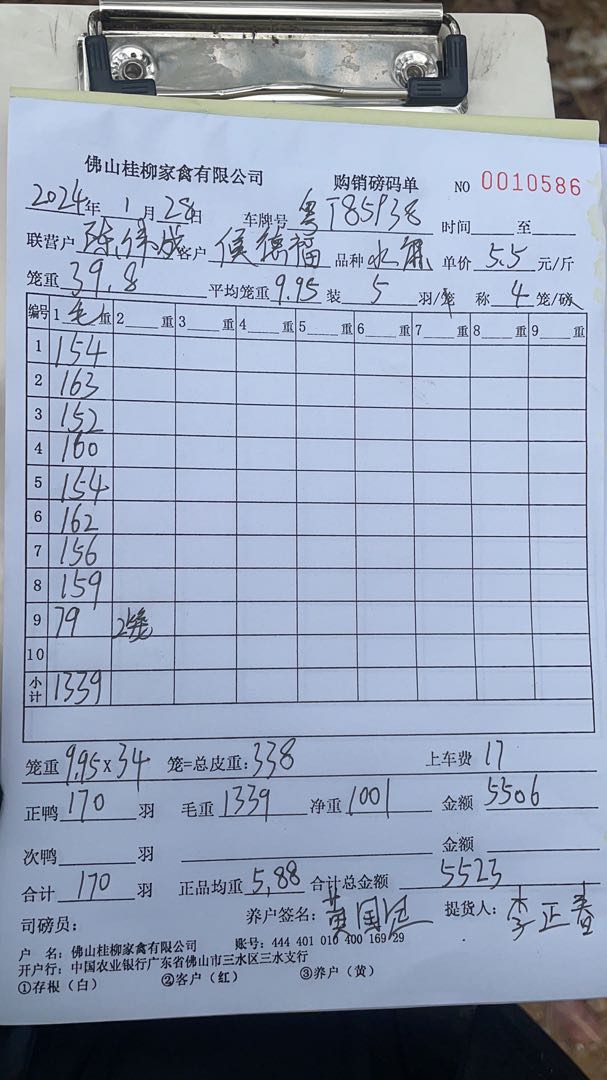 佛山桂柳家禽有限公司 购销磅码单 NO 0010586
2024年 1月 28日 车牌号 粤T85938 时间 至
联营户 陈伟成 客户 侯德福 品种 水 单价 5.5 元/斤
笼重 39.8 平均笼重 9.95 装 5 羽/笼 称 4 笼/磅
编号 1 毛 重 2 重 3 重 4 重 5 重 6 重 7 重 8 重 9 重
1 154
2 163
3 152
4 160
5 154
6 162
7 156
8 159
9 79 2笼
10
小计 1339
笼重 9.95 x 34 笼=总皮重: 338 上车费 17
正鸭 170 羽 毛重 1339 净重 1001 金额 5506
次鸭 羽 金额
合计 170 羽 正品均重 5.88 合计总金额 5523
司磅员: 养户签名: 黄国 提货人: 李正春
户 名: 佛山桂柳家禽有限公司 账号: 444 401 010 400 169 29
开户行: 中国农业银行广东省佛山市三水区三水支行
①存根（白） ②客户（红） ③养户（黄）